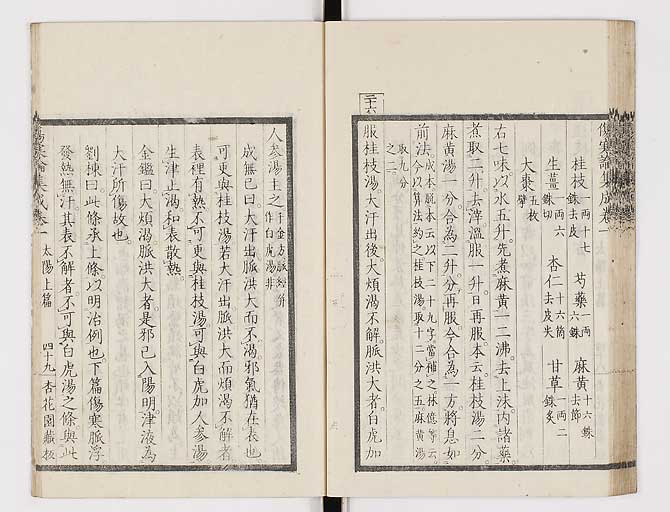 傷寒論集成卷一
桂枝一兩十七銖去皮 芍藥一兩六銖 麻黃十六銖去節
生薑一兩六銖切 杏仁十六箇去皮尖 甘草一兩二銖炙
大棗五枚擘
右七味以水五升先煮麻黃一二沸去上沫內諸藥
煮取二升去滓溫服一升日再服本云桂枝湯二分
麻黃湯一分合為二升分再服今合為一方將息如
前法
成本脈本云以下二十九字當補之林億等云
今以算法約之桂枝湯取十二分之五麻黃湯
取九分
之二
二十六
服桂枝湯大汗出後大煩渴不解脈洪大者白虎加
人參湯主之
千金方脈經並
作白虎湯非
成無已曰大汗出脈洪大而不渴邪氣猶在表也
可更與桂枝湯若大汗出脈洪大而煩渴不解者
表裡有熱不可更與桂枝湯可與白虎加人參湯
生津止渴和表散熱
金鑑曰大煩渴脈洪大者是邪已入陽明津液為
大汗所傷故也
劉棟曰此條承上條以明治例也下篇傷寒脈浮
發熱無汗其表不解者不可與白虎湯之條與此
集成卷一 太陽上篇 四十九 杏花園藏板